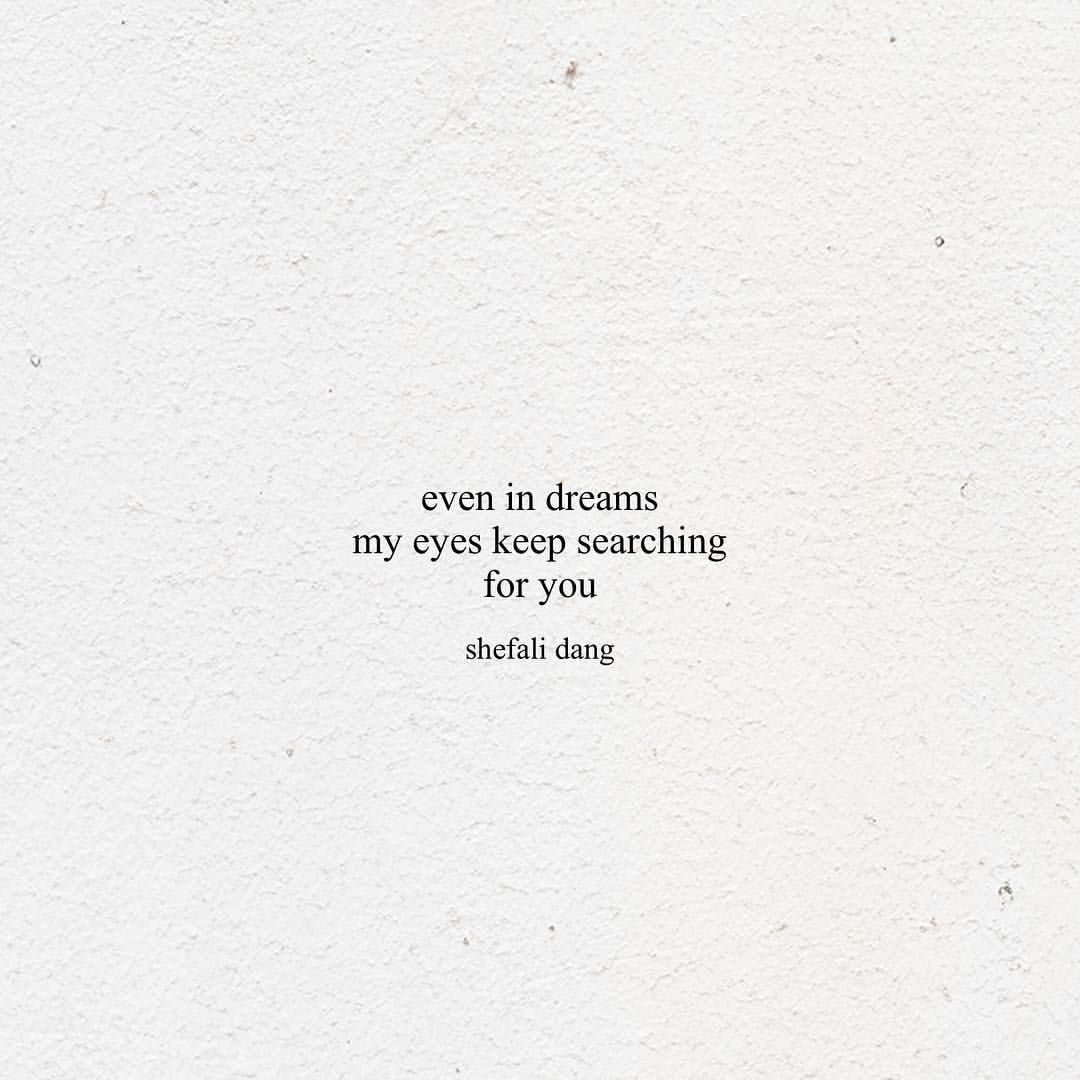 even in dreams
my eyes keep searching
for you
shefali dang